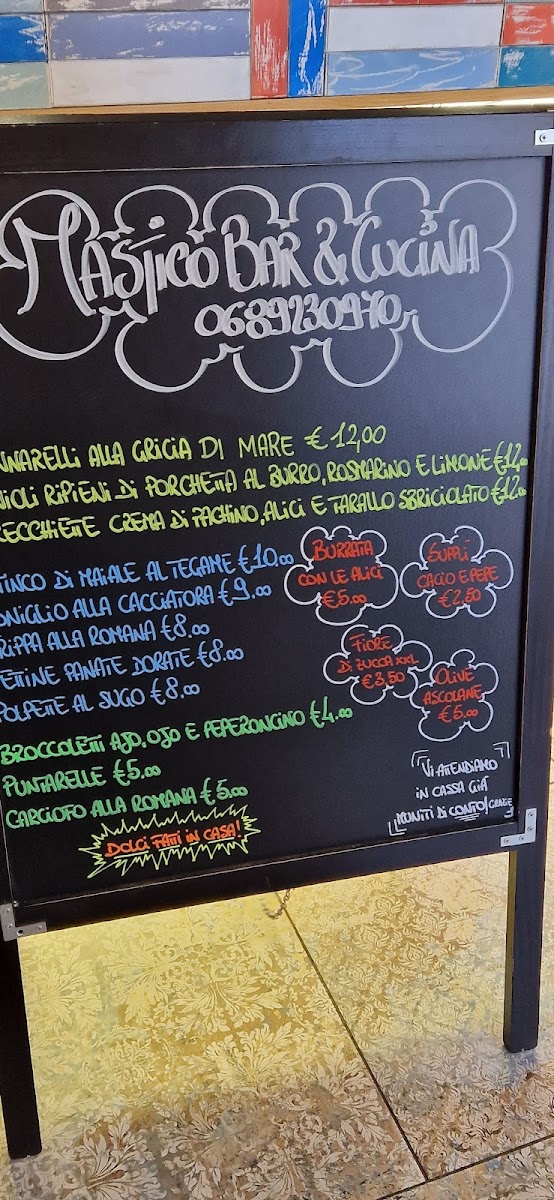 MASTICO BAR & CUCINA
0689230970
NNARELLI ALLA GRICIA DI MARE € 12,00
IOLI RIPIENI DI PORCHETTA AL BURRO, ROSMARINO E LIMONE €12,00
RECCHIETTE CREMA DI PACHINO, ALICI E TARALLO SBRICIOLATO €12,00
TINCO DI MAIALE AL TEGAME €10,00
ONIGLIO ALLA CACCIATORA €9,00
RIPPA ALLA ROMANA €8,00
ETTINE PANATE DORATE €8,00
POLPETTE AL SUGO €8,00
BROCCOLETTI AJO, OJO E PEPERONCINO €4,00
PUNTARELLE €5,00
CARCIOFO ALLA ROMANA €5,00
DOLCI FATTI IN CASA!
BURRATA
CON LE ALICI
€5,00
SUPPLÌ
CACIO E PEPE
€2,50
FIORE
DI ZUCCA XXL
€3,50
OLIVE
ASCOLANE
€5,00
VI ATTENDIAMO
IN CASSA GIÀ
MUNITI DI CONTO! GRAZIE